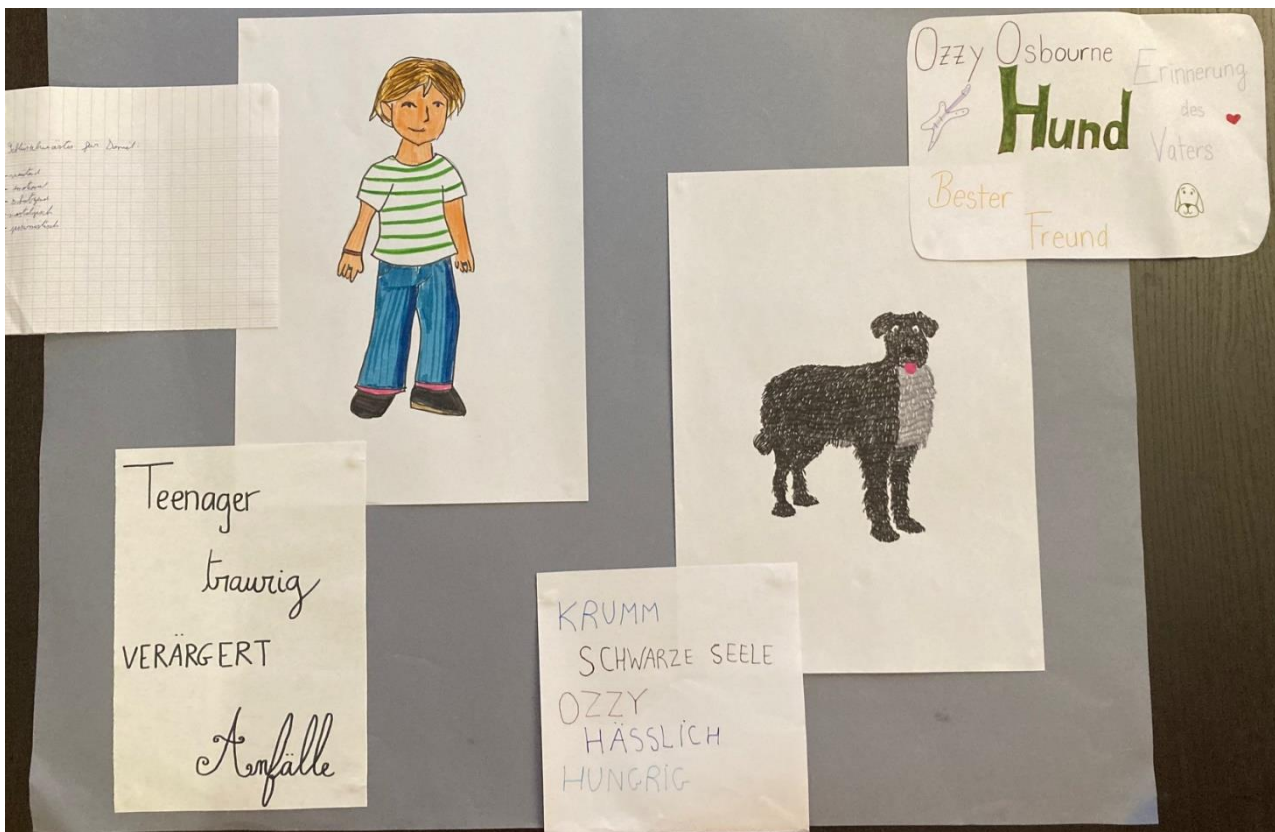 Ozzy Osbourne
Hund
Erinnerung
des
Vaters
Bester
Freund
für Daniel.
Teenager
traurig
VERÄRGERT
Anfälle
KRUMM
SCHWARZE SEELE
OZZY
HÄSSLICH
HUNGRIG